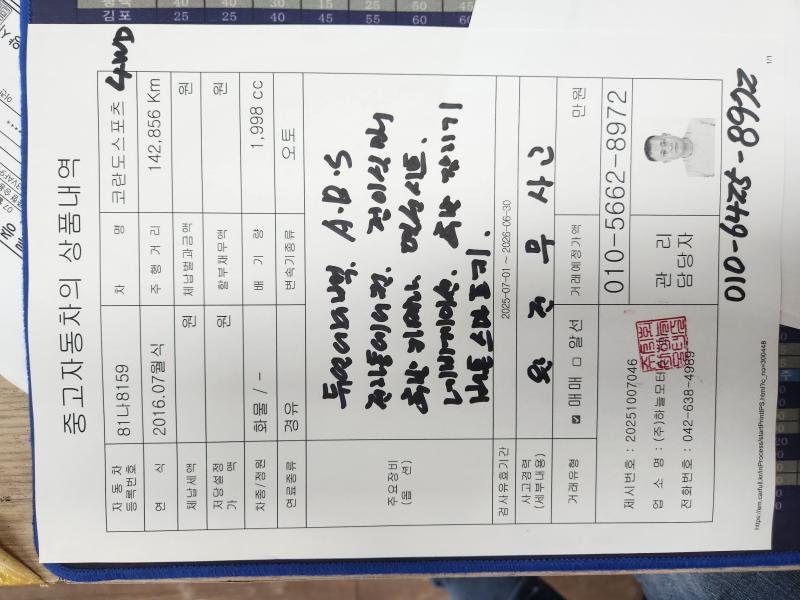 중고자동차의 상품내역
자동차 등록번호 81나8159 차 명 코란도스포츠 4WD
연 식 2016.07월식 주 행 거 리 142,856 Km
체납세액 원 체납벌과금액 원
저당설정가액 원 할부채무액 원
차종/정원 화물 / - 배 기 량 1,998 cc
연료종류 경유 변속기종류 오토
주요장비
(옵 션)
듀얼에어백. A·B·S
전자동에어컨. 접이식 미러
후방 카메라. 열선시트.
네비게이션. 후방 감지기
버튼 스마트키.
검사유효기간 2025-07-01 ~ 2026-06-30
사고경력
(세부내용)
완 전 무 사고
거래유형 ☑ 매매 □ 알선 거래예정가액 만원
제시번호 : 20251007046
업 소 명 : (주)하늘모터
전화번호 : 042-638-4989
관 리
담당자
010-5662-8972
010-6425-8972
1/1
김포 25 25 30 15 25 50
40 40 45
60 60